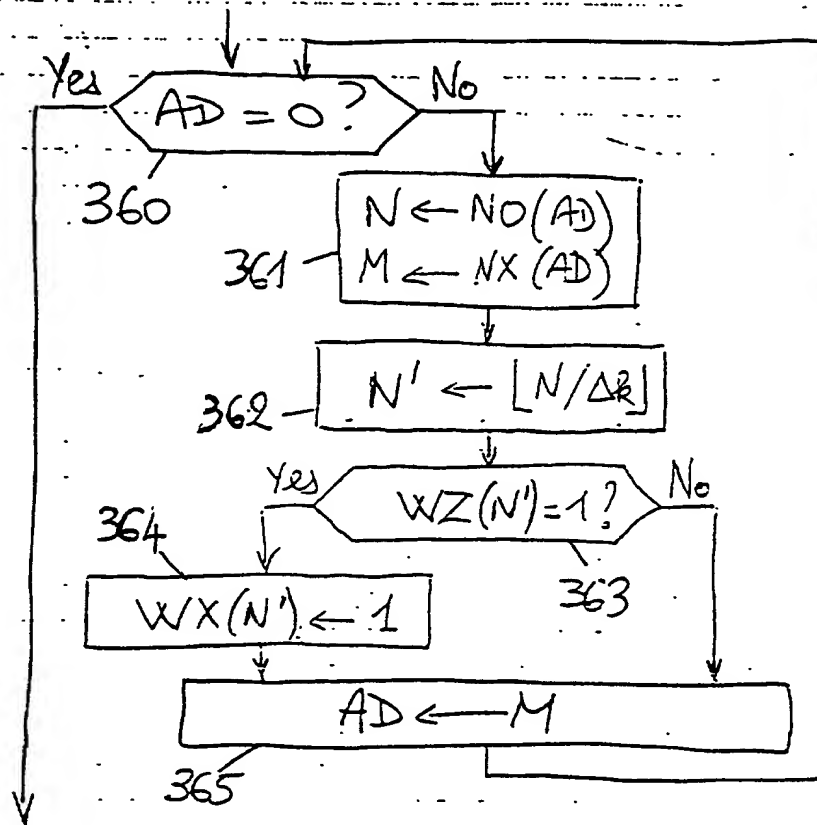 Yes
No
AD = 0?
360
N ← NO(AD)
M ← NX(AD)
361
N' ← ⌊N/Δk⌋
362
Yes
No
WZ(N')=1?
364
363
WX(N') ← 1
AD ← M
365